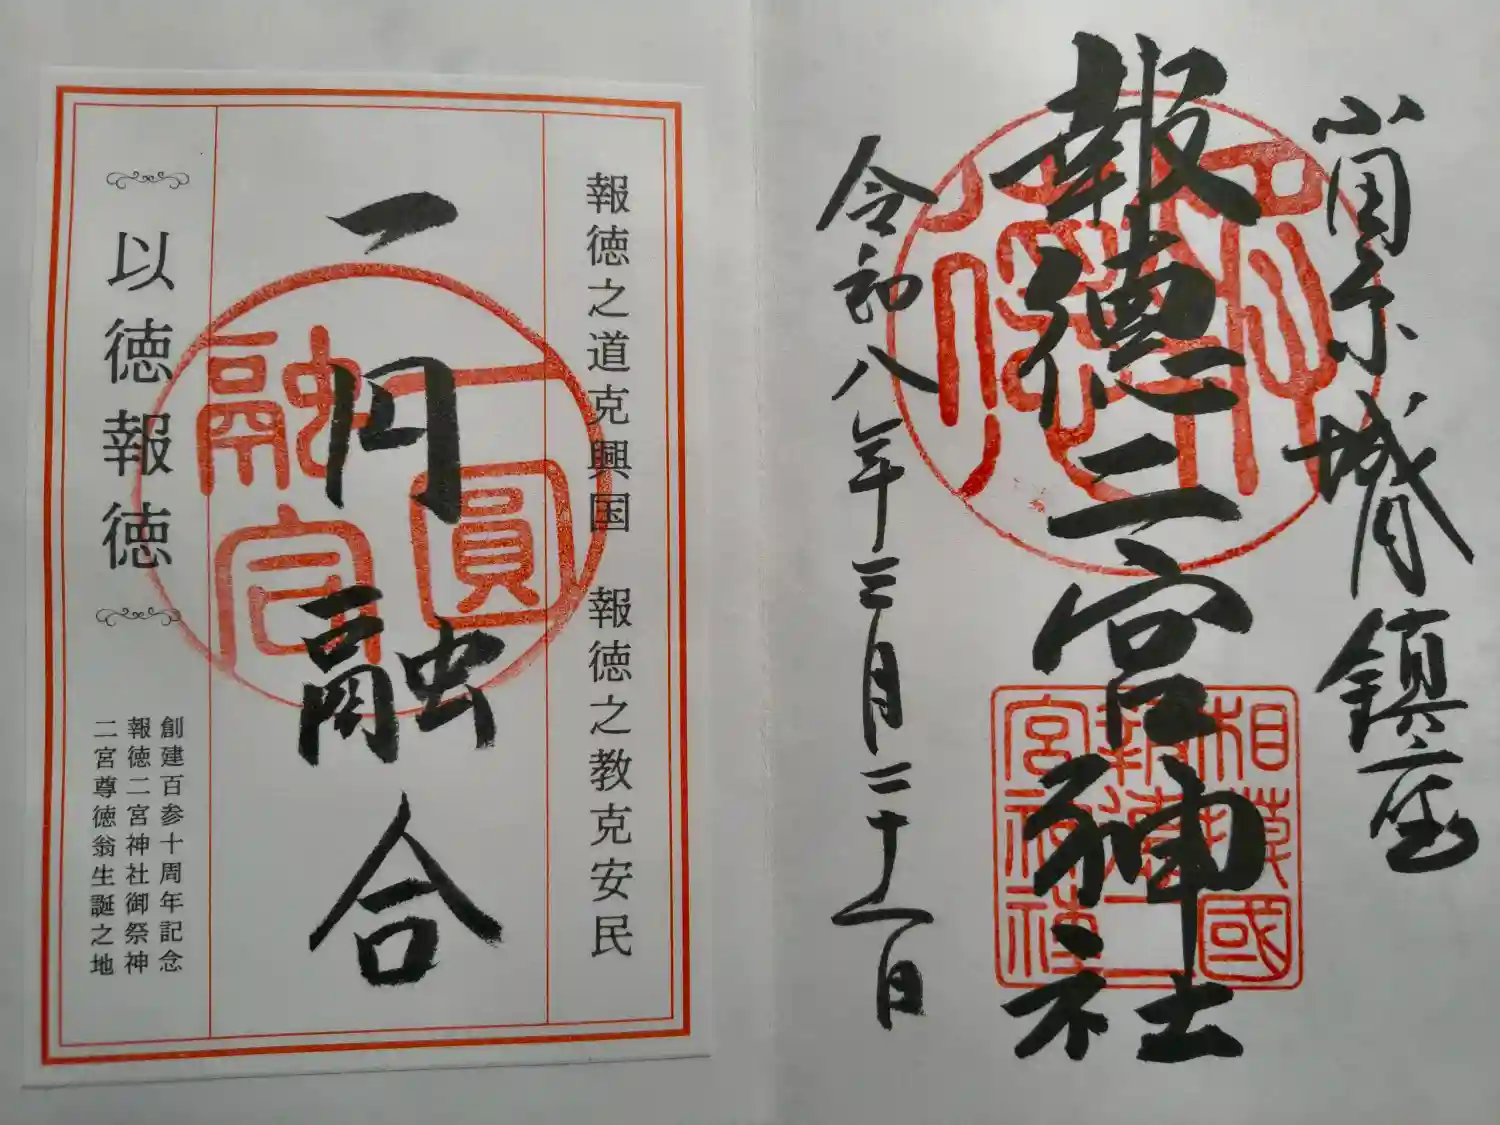 小田原城内鎮座
報徳二宮神社
相模國
報徳二
宮神社
令和八年三月二十一日
報徳之道克興国　報徳之教克安民
一円融合
一圓
融合
以徳報徳
創建百参十周年記念
報徳二宮神社御祭神
二宮尊徳翁生誕之地